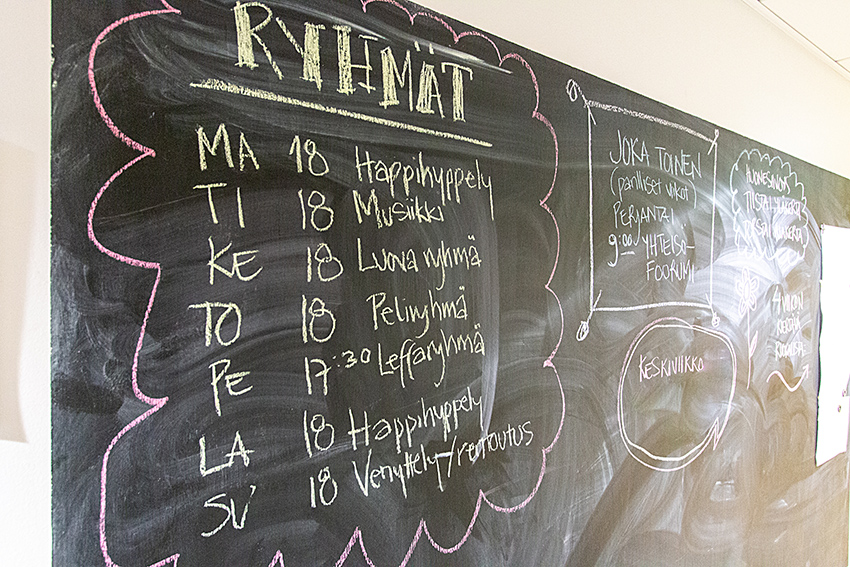 RYHMÄT
MA 18 Happihyppely
TI 18 Musiikki
KE 18 Luova ryhmä
TO 18 Peliryhmä
PE 17:30 Leffaryhmä
LA 18 Happihyppely
SU 18 Venyttely-/rentoutus
JOKA TOINEN
(parilliset viikot)
PERJANTAI
9:00 YHTEISÖ-
FOORUMI
KESKIVIIKKO
HUONESIIVOUS
4 VIIKON